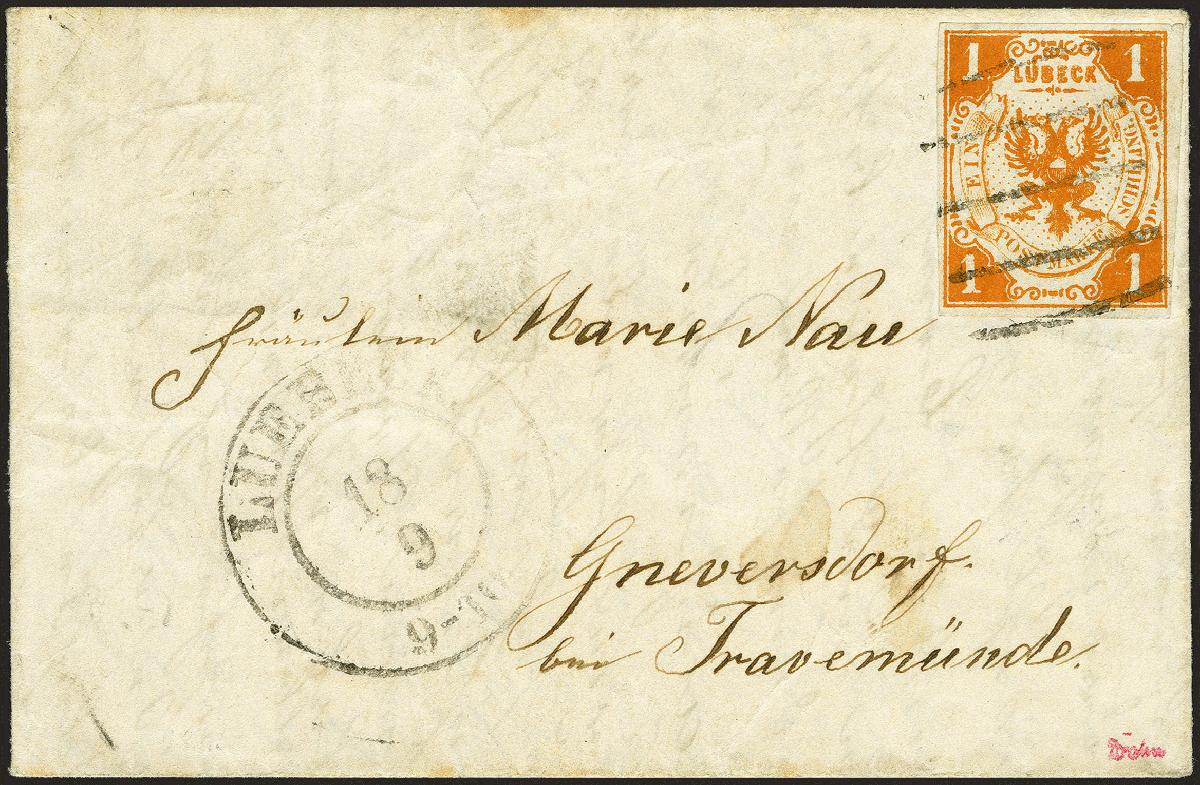 1 1
LÜBECK
EIN SCHILLING
POST MARKE
1 1
Fräulein Marie Nau
LUEBECK
18
9
9-10
Gneversdorf.
bei Travemünde.